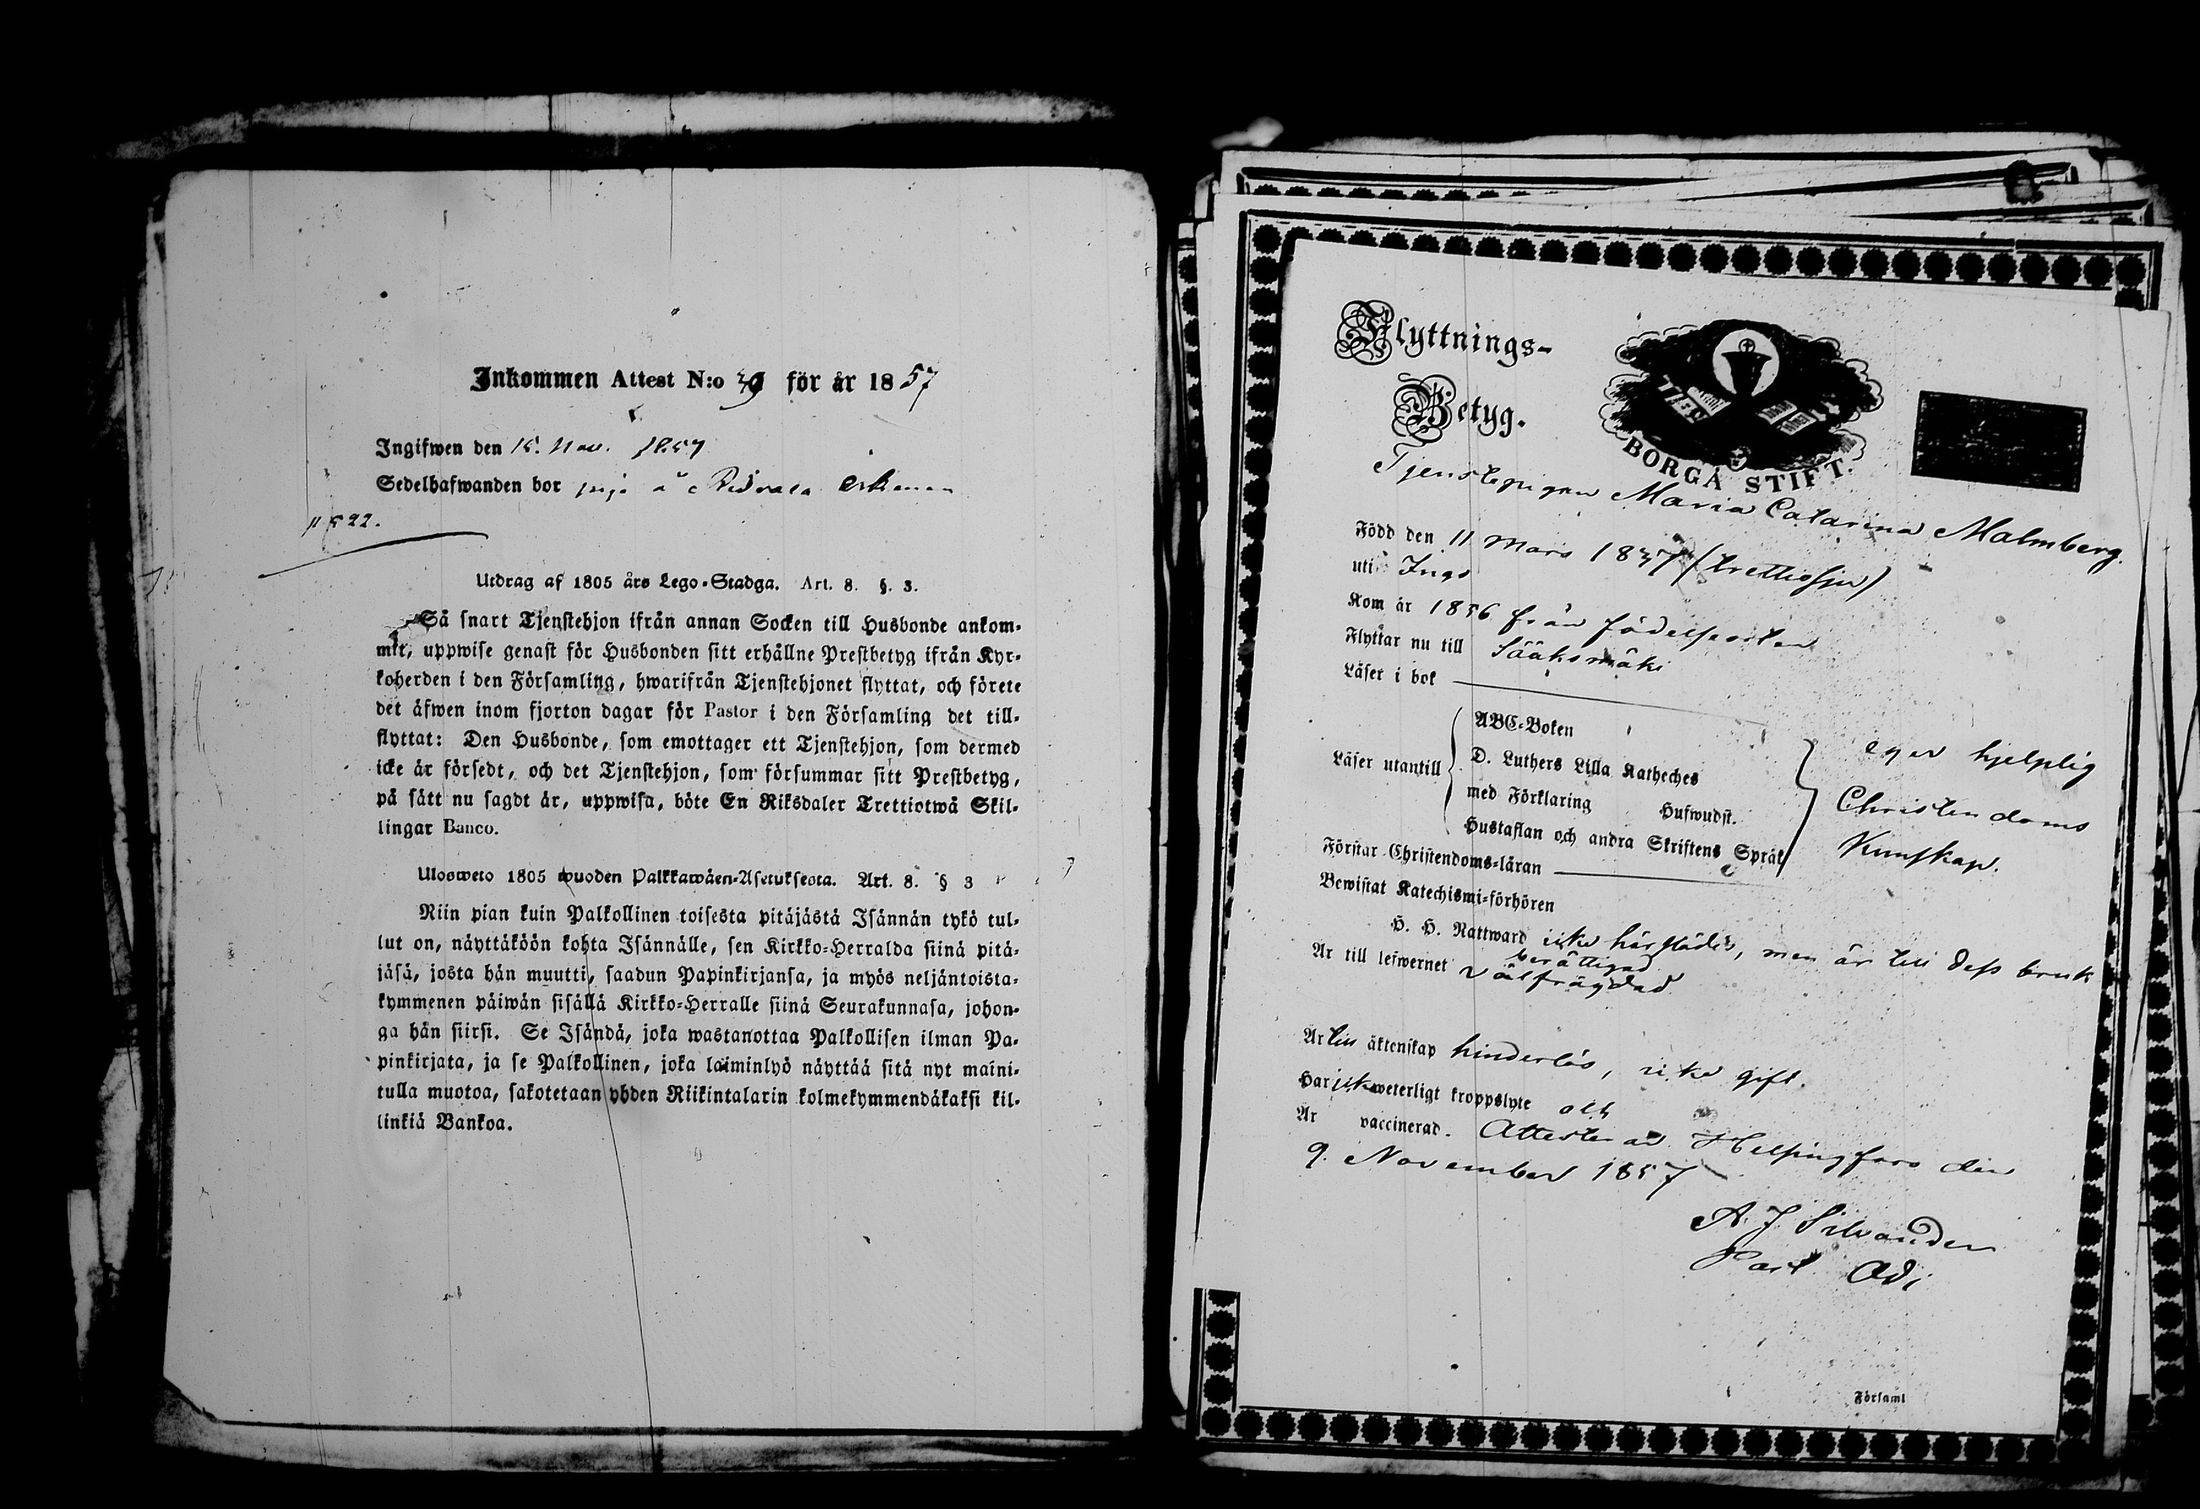 Inkommen Attest N:o 39 för år 1857
Ingifwen den 15. Nov. 1857
Sedelhafwanden bor piga å Ridvala
p 522.
Utdrag af 1805 års Lego-Stadga. Art. 8. §. 3.
Så snart Tjenstehjon ifrån annan Socken till Husbonde ankom-
mit, uppwise genast för Husbonden sitt erhållne Prestbetyg ifrån Kyr-
koherden i den Församling, hwarifrån Tjenstehjonet flyttat, och förete
det äfwen inom fjorton dagar för Pastor i den Församling det till-
flyttat: Den Husbonde, som emottager ett Tjenstehjon, som dermed
icke är försedt, och det Tjenstehjon, som försummar sitt Prestbetyg,
på sätt nu sagdt är, uppwisa, böte En Riksdaler Trettiotwå Skil-
lingar Banco.
Ulosweto 1805 wuoden Palkkawäen-Asetuksesta. Art. 8. § 3
Niin pian kuin Palkollinen toisesta pitäjästä Isännän tykö tul-
lut on, näyttäköön kohta Isännälle, sen Kirkko-Herralda siinä pitä-
jäsä, josta hän muutti, saadun Papinkirjansa, ja myös neljäntoista-
kymmenen päiwän sisällä Kirkko-Herralle siinä Seurakunnasa, johon-
ga hän siirsi. Se Isändä, joka wastanottaa Palkollisen ilman Pa-
pinkirjata, ja se Palkollinen, joka laiminlyö näyttää sitä nyt maini-
tulla muotoa, sakotetaan yhden Riikintalarin kolmekymmendäkaksi kil-
linkiä Bankoa.
Flyttnings-
Betyg.
BORGÅ STIFT.
Tjenstepigan Maria Catarina Malmberg.
Född den 11 Mars 1837 (trettiosju)
uti Ingo
Kom år 1856 från födelseorten
Flyttar nu till Sääksmäki
Läser i bok
Läser utantill
ABC-Boken
D. Luthers Lilla Katheches
med Förklaring Hufwudst.
Hustaflan och andra Skriftens Språk
eger hjelplig
Christendoms
Kunskap.
Förstår Christendoms-läran
Bewistat Katechismi-förhören
H. H. Nattward icke härstädes, men är till dess bruk
berättigad
Är till lefwernet välfrägdad
Är till äktenskap hinderlös, icke gift.
Har icke weterligt kroppslyte och
Är vaccinerad. Attesterar Helsingfors den
9. November 1857
A. J. Silvander
Past. Adj
Församl